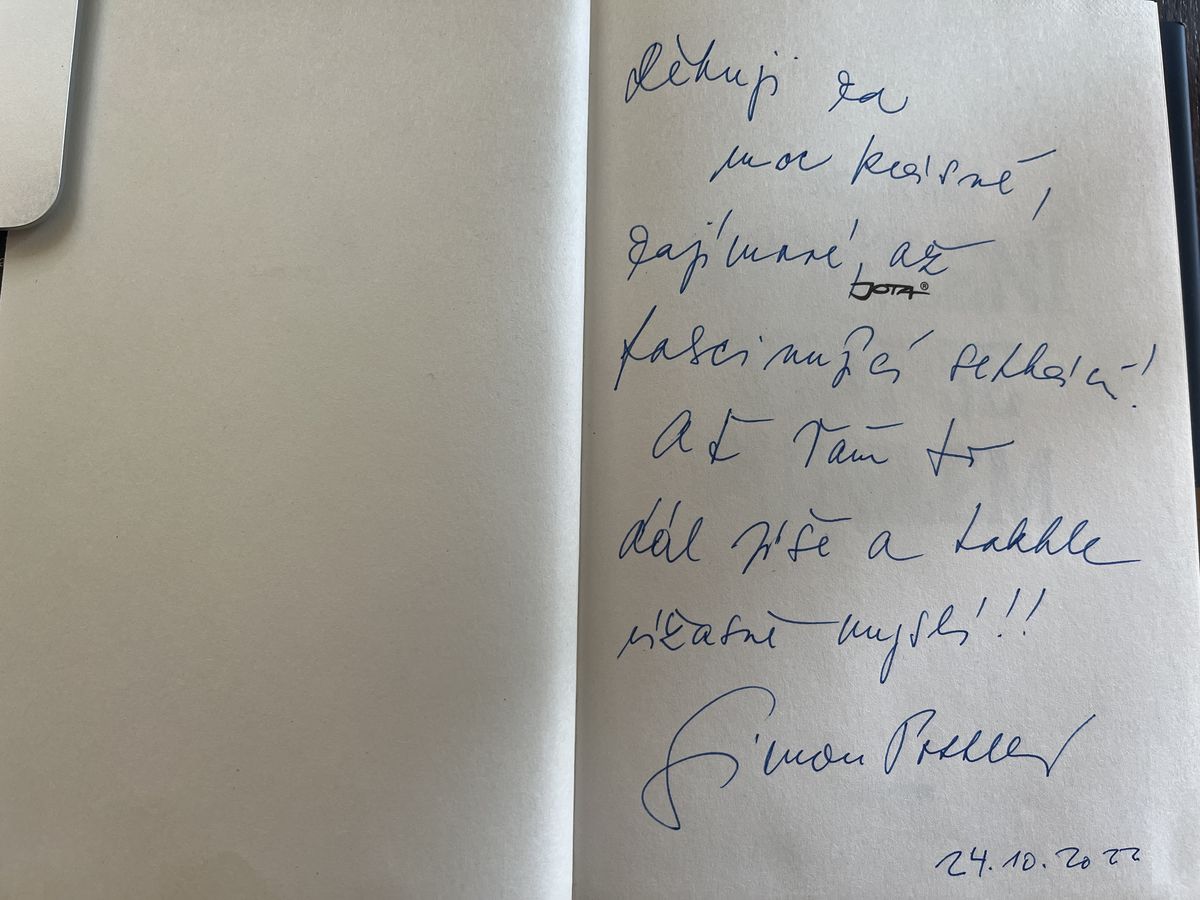 Děkuji za
moc krásné,
zajímavé, až
JOTA®
fascinující setkání!
Ať Vám to
dál píše a takhle
úžasně myslí!!
Simon
24.10.2022